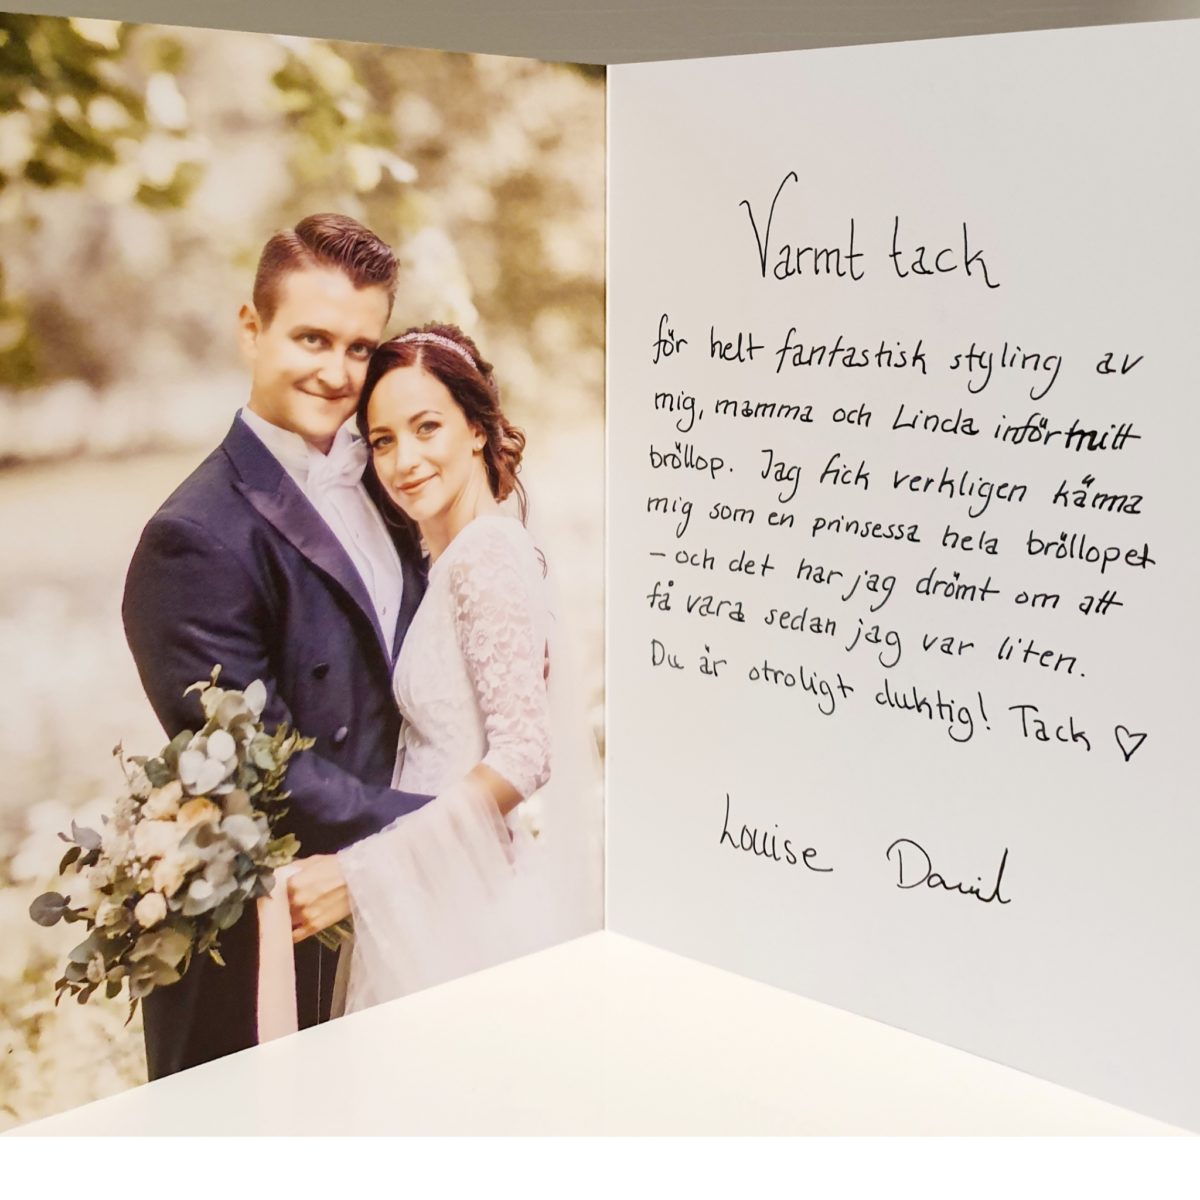 Varmt tack
för helt fantastisk styling av
mig, mamma och Linda inför mitt
bröllop. Jag fick verkligen känna
mig som en prinsessa hela bröllopet
- och det har jag drömt om att
få vara sedan jag var liten.
Du är otroligt duktig! Tack ♡
Louise David